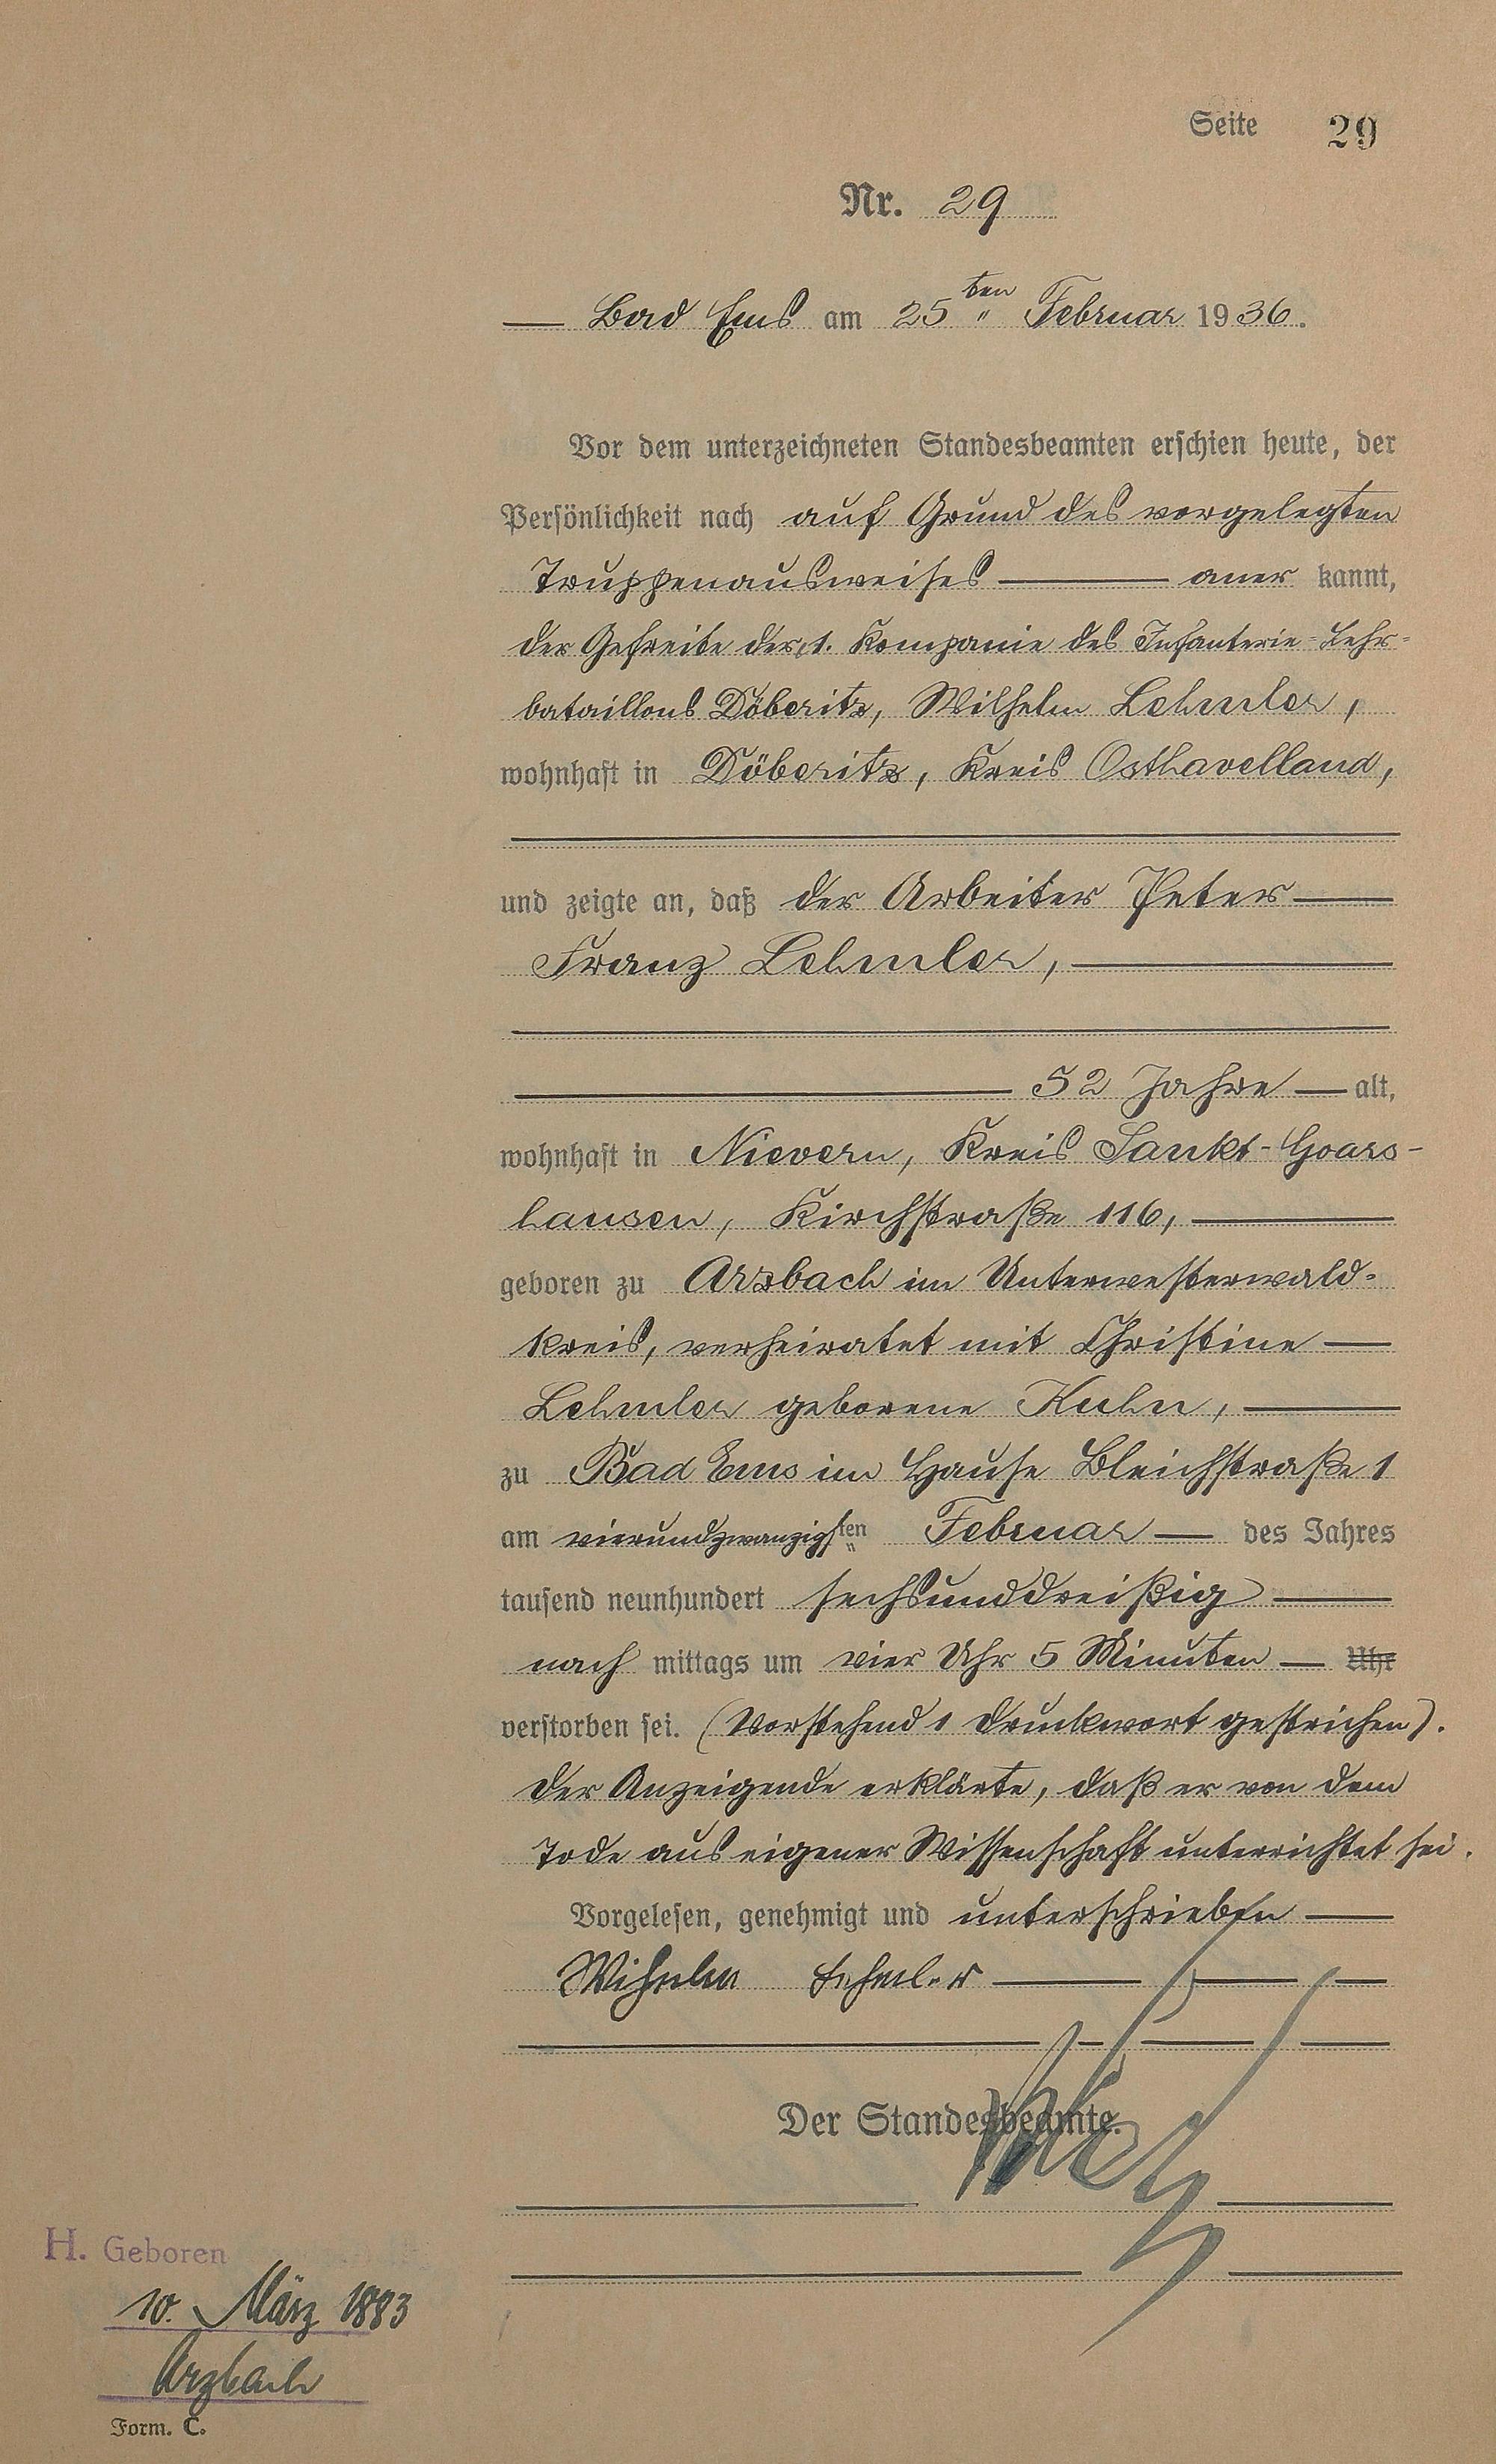 Seite 29
Nr. 29
Bad Ems am 25ten Februar 1936.
Vor dem unterzeichneten Standesbeamten erschien heute, der
Persönlichkeit nach auf Grund des vorgelegten
Truppenausweises — aner kannt,
der Gefreite der 1. Kompanie des Infanterie-Lehr-
bataillons Döberitz, Wilhelm Lehmler,
wohnhaft in Döberitz, Kreis Osthavelland,
und zeigte an, daß der Arbeiter Peter —
Franz Lehmler, —
52 Jahre — alt,
wohnhaft in Nievern, Kreis Sankt-Goars-
hausen, Kirchstraße 116, —
geboren zu Arzbach im Unterwesterwald-
kreis, verheiratet mit Christine —
Lehmler geborene Kuhn, —
zu Bad Ems im Hause Bleichstraße 1
am vierundzwanzigsten Februar — des Jahres
tausend neunhundert sechsunddreißig —
nach mittags um vier Uhr 5 Minuten — Uhr
verstorben sei. (Vorstehend 1 Druckwort gestrichen).
Der Anzeigende erklärte, daß er von dem
Tode aus eigener Wissenschaft unterrichtet sei.
Vorgelesen, genehmigt und unterschrieben —
Wilhelm Lehmler —
Der Standesbeamte.
H. Geboren
10. März 1883
Arzbach
Form. C.